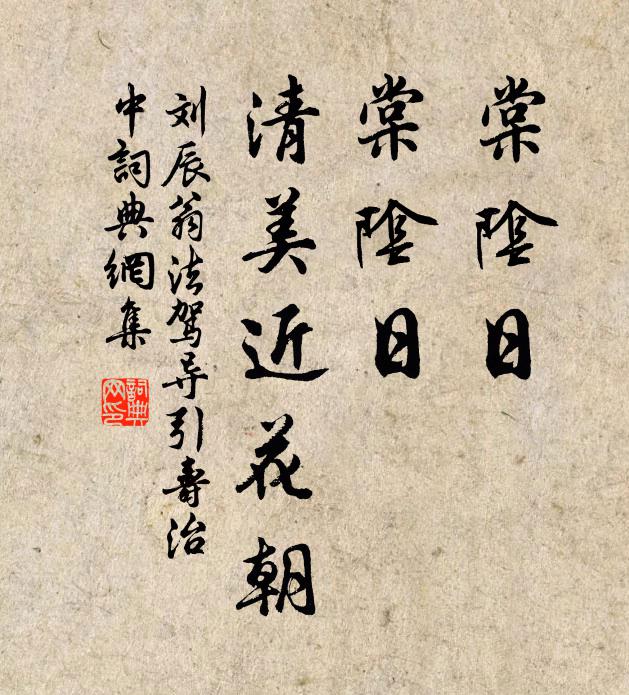 棠陰日
棠陰日
清美近花朝
刘辰翁法驾导引壽治
中詞典網集
詞典
网印